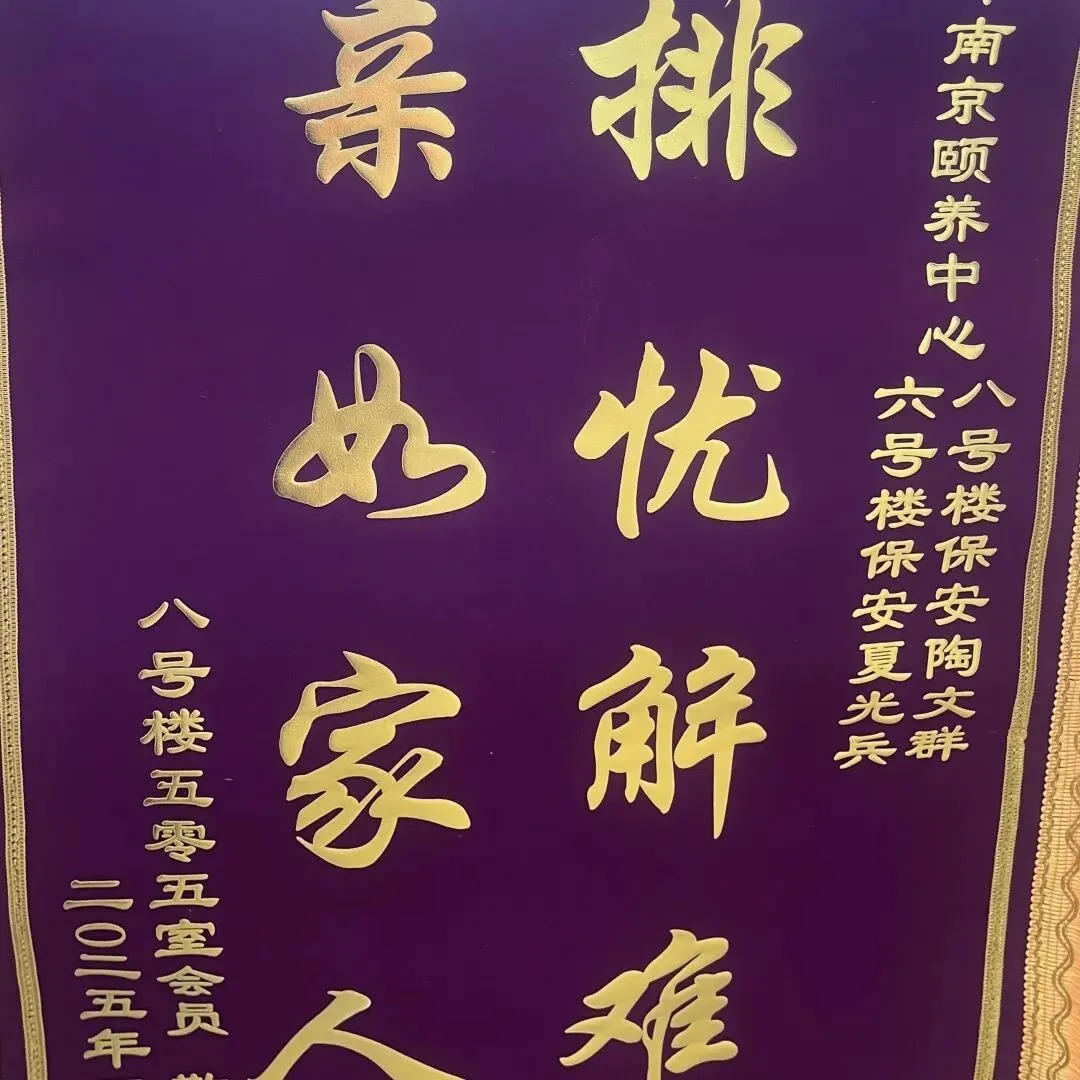 南京颐养中心
八号楼保安陶文群
六号楼保安夏光兵
排忧解难
亲如家人
八号楼五零五室会员
二〇二五年